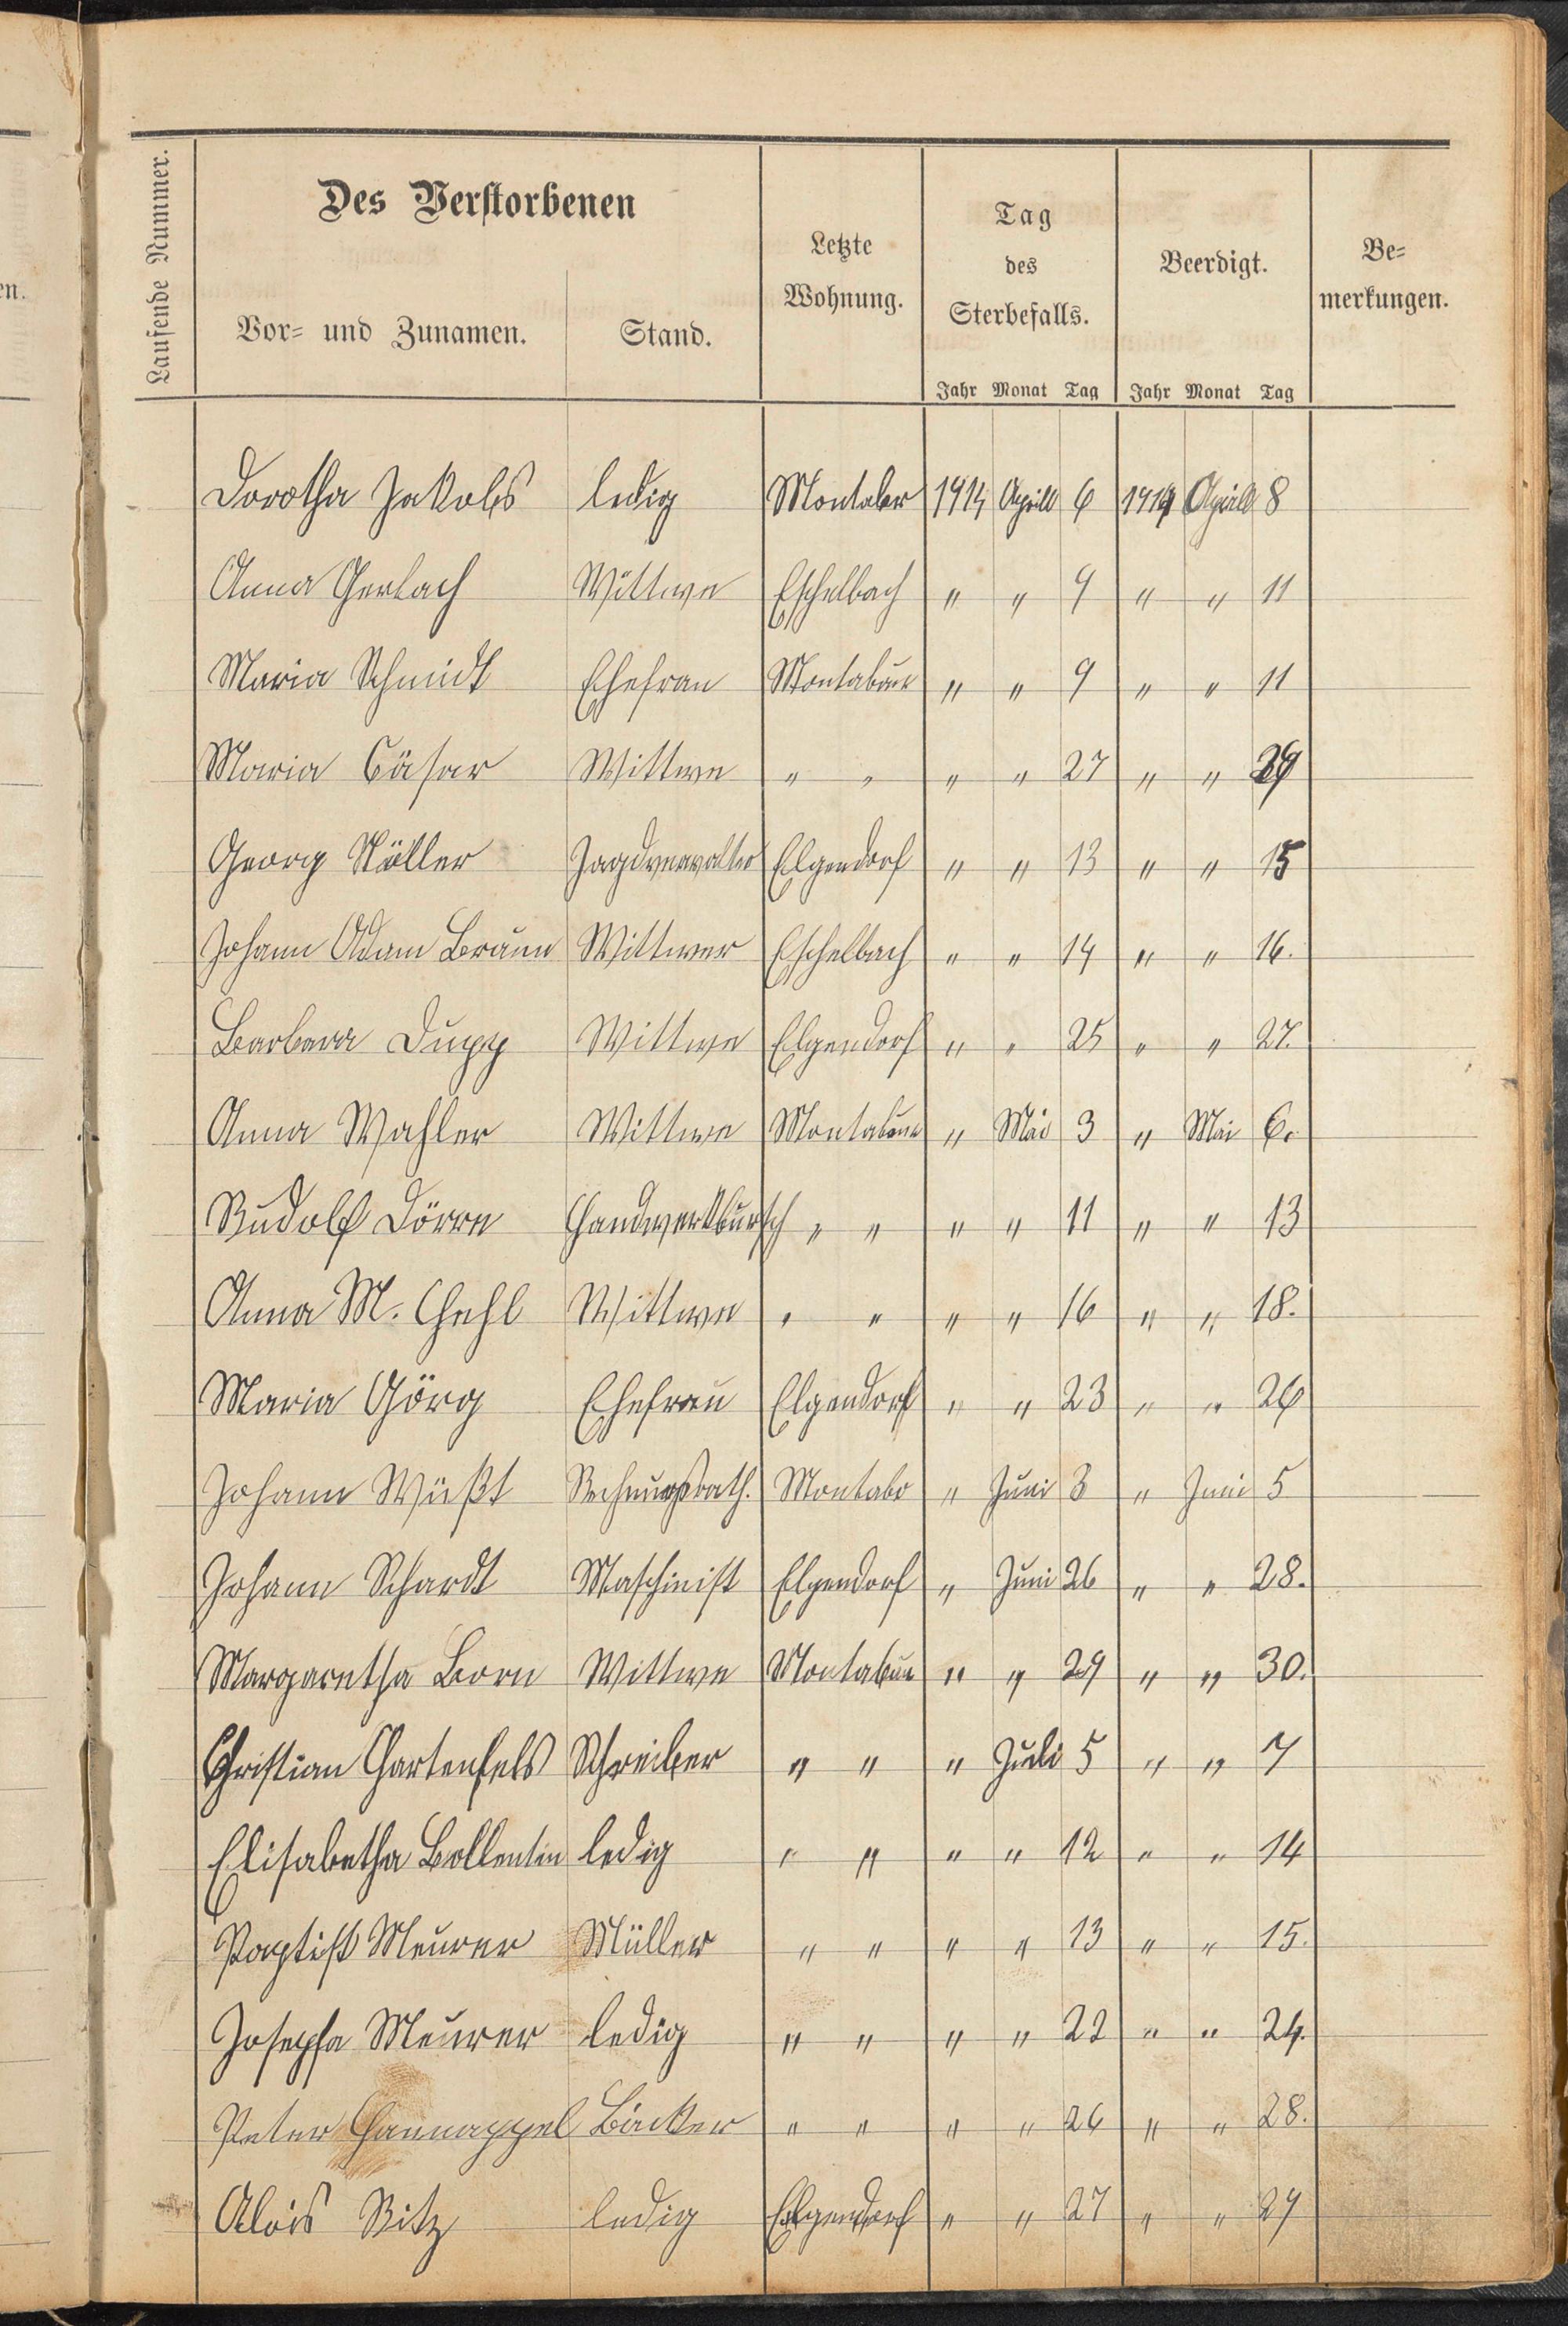 en.
Laufende Nummer.
Des Verstorbenen
Vor= und Zunamen. Stand.
Letzte Wohnung.
Tag des Sterbefalls.
Beerdigt.
Be=
merkungen.
Jahr Monat Tag Jahr Monat Tag
Dorotha Jakobs ledig Montabr 1914 Aprill 6 1914 Aprill 8
Anna Gerlach Wittwe Eschelbach " " 9 " " 11
Maria Schmidt Ehefrau Montabaur " " 9 " " 11
Maria Cäsar Wittwe " " " " 27 " " 29
Georg Köller Jagdverwalter Elgendorf " " 13 " " 15
Johann Adam Braun Wittwer Eschelbach " " 14 " " 16.
Barbara Dupp Wittwe Elgendorf " " 25 " " 27.
Anna Wahler Wittwe Montabaur " Mai 3 " Mai 6.
Rudolf Dörre Handwerkbursch " " " " 11 " " 13
Anna M. Hehl Wittwe " " " " 16 " " 18.
Maria Görg Ehefrau Elgendorf " " 23 " " 26
Johann Wüßt Rechnungsrath. Montabr " Juni 3 " Juni 5
Johann Schardt Maschinist Elgendorf " Juni 26 " " 28.
Margaretha Born Wittwe Montabaur " " 29 " " 30.
Christian Hartenfels Schreiber " " " Juli 5 " " 7
Elisabetha Bollentin ledig " " " " 12 " " 14
Baptist Meurer Müller " " " " 13 " " 15.
Josepha Meurer ledig " " " " 22 " " 24.
Peter Hannappel Bäcker " " " " 26 " " 28.
Alois Bitz ledig Elgendorf " " 27 " " 29